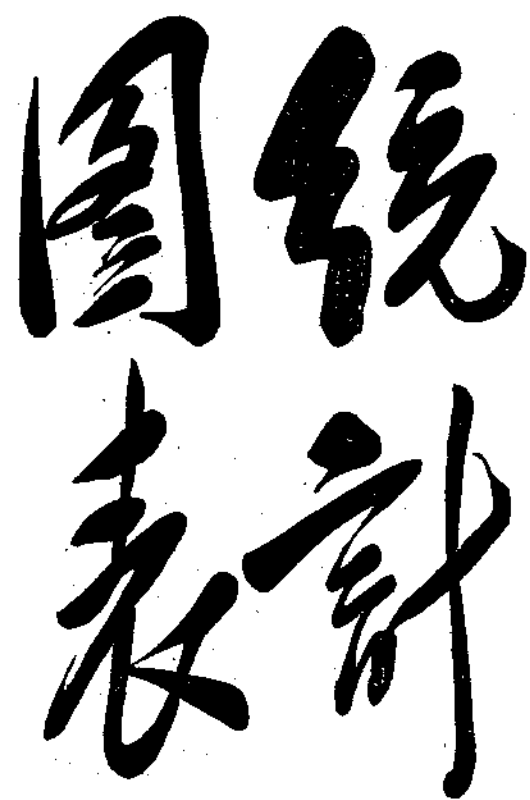 統計
圖表